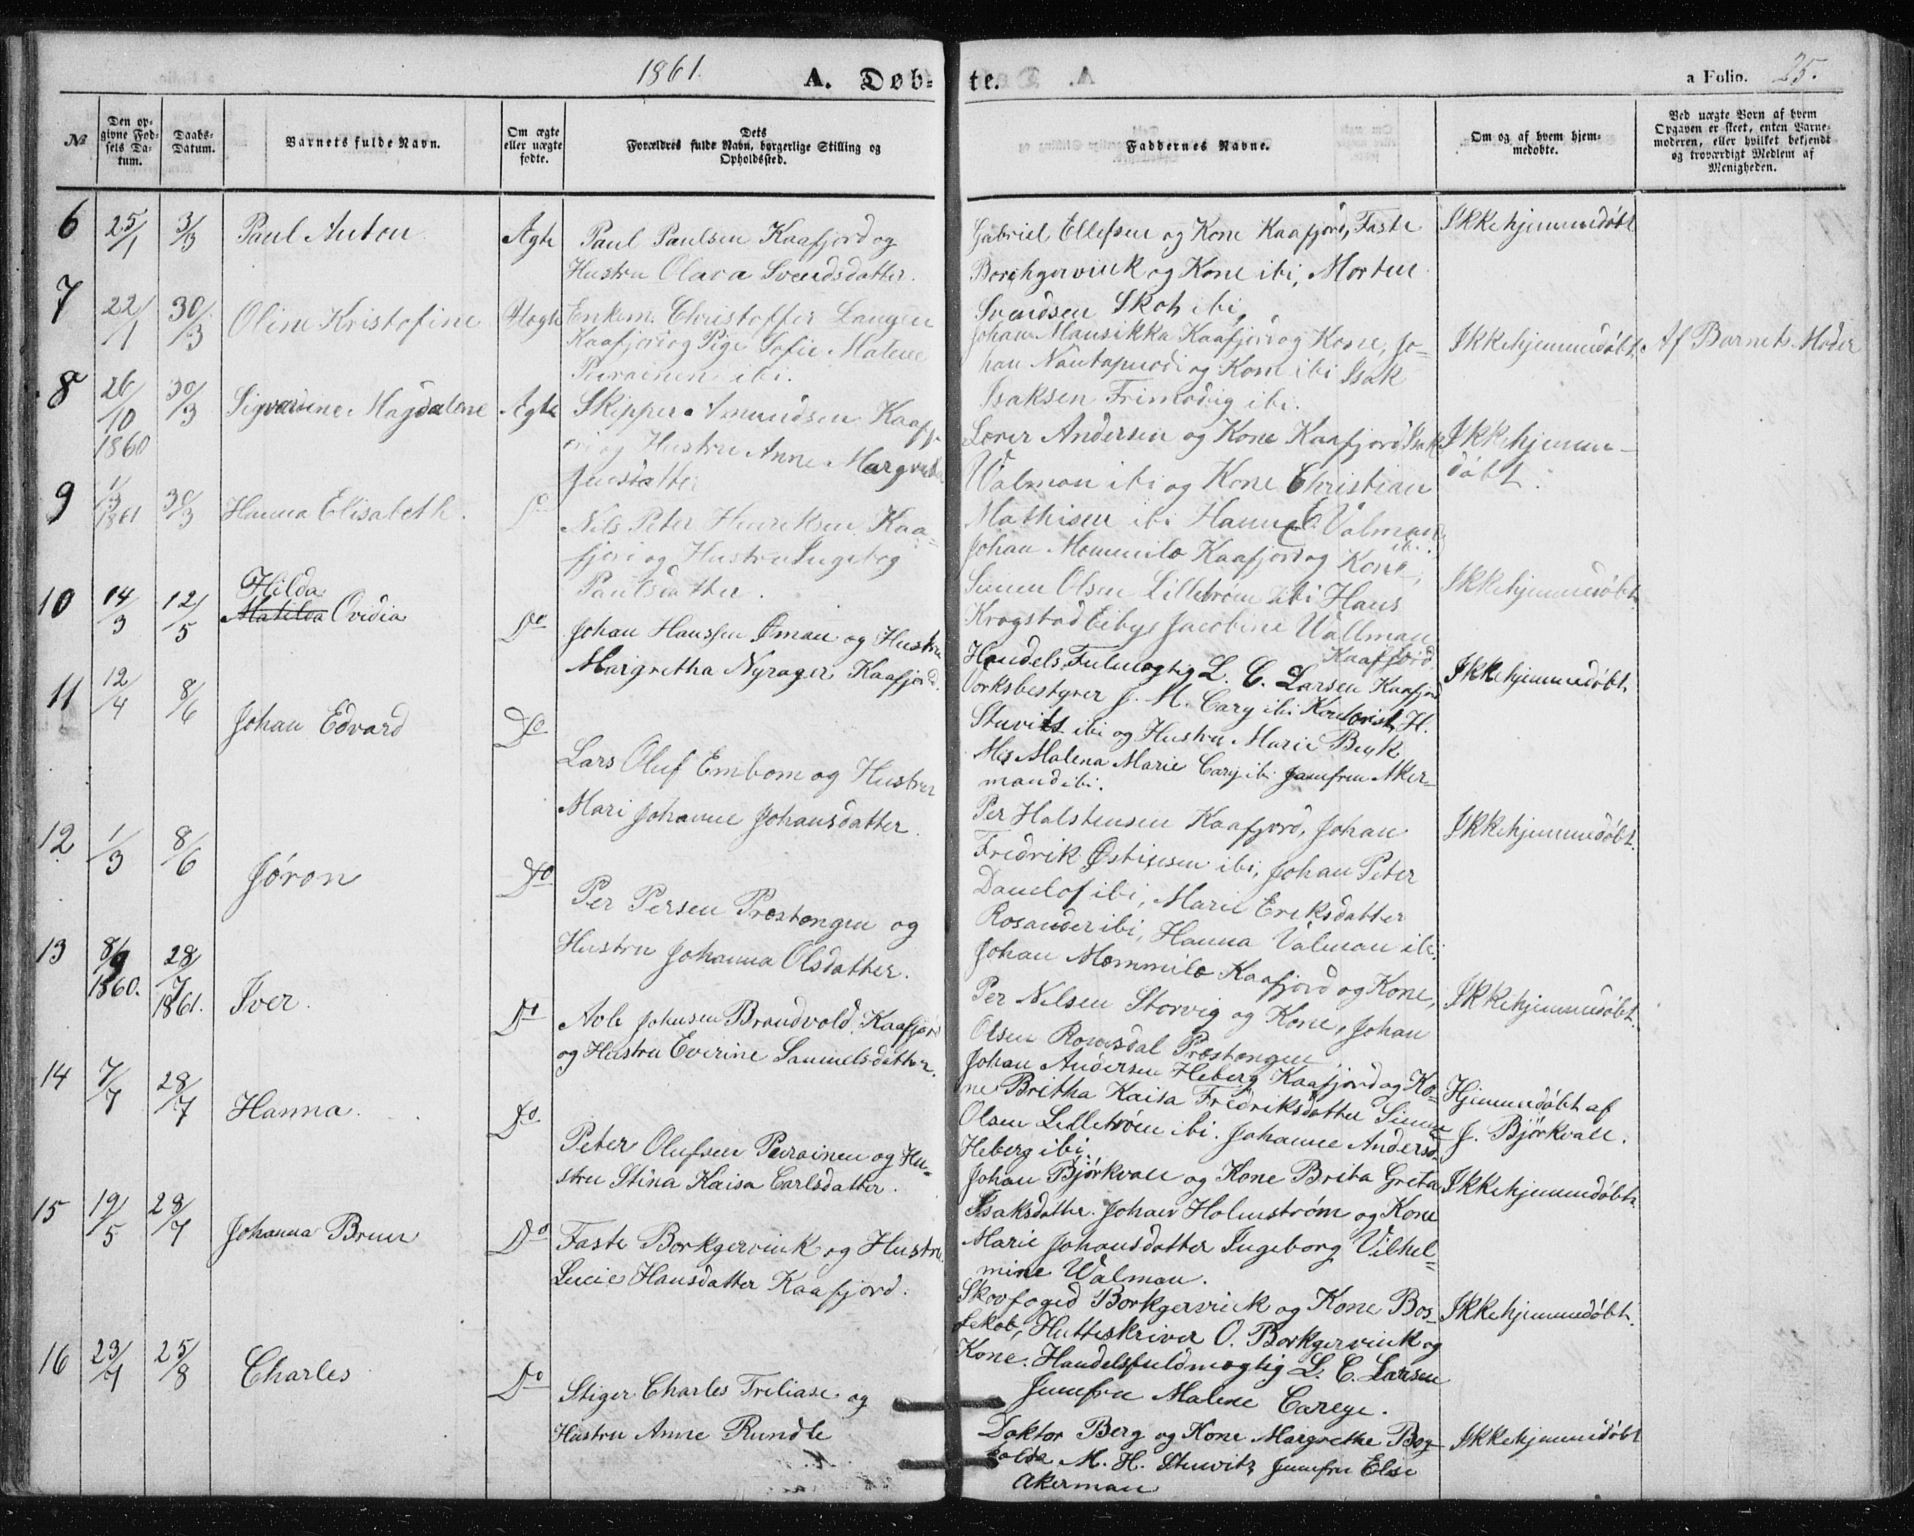 1861.
A. Døb-
te.
a Folio. 25.
№
Den op-
givne Fød-
sels Da-
tum.
Daabs-
Datum.
Barnets fulde Navn.
Om ægte
eller uægte
fødte.
Dets
Forældres fulde Navn, borgerlige Stilling og
Opholdssted.
Faddernes Navne.
Om og af hvem hjem-
medøbte.
Ved uægte Børn af hvem
Opgaven er skeet, enten Barne-
moderen, eller hvilket bekjendt
og troværdigt Medlem af
Menigheden.
6
25/1
3/3
Paul Anton
Ægte
Paul Paulsen Kaafjord og
Hustru Olava Svendsdatter.
Gabriel Ellefsen og Kone Kaafjord, Faste
Borchgervink og Kone ibi, Morten
Svendsen Skoh ibi,
Ikke hjemmedøbt
7
22/1
30/3
Oline Kristofine
Uægte
Enkem. Christoffer Langen
Kaafjord og Pige Sofie Malene
Peirainen ibi.
Johan Mansikka Kaafjord og Kone, Jo-
han Nautapuodi og Kone ibi Isak
Isaksen Frimodig ibi.
Ikke hjemmedøbt.
Af Barnets Moder
8
26/10
1860
30/3
Sigvarine Magdalene
Ægte
Skipper Amundsen Kaafj-
ord og Hustru Anne Margretha
Jensdatter
Lærer Andersen og Kone Kaafjord Isak
Valman ibi og Kone Christian
Mathisen ibi Hanna E. Valman
ibi.
Ikke hjemme-
døbt.
9
1/3
1861
30/3
Hanna Elisabeth.
Do
Nils Peter Henriksen Kaa-
fjord og Hustru Ingebog
Paulsdatter.
Johan Mommilo Kaafjord og Kone,
Simen Olsen Lillestrøm ibi Hans
Krogstad Eiby, Jacobine Wallman
Kaafjord
Ikke hjemmedøbt.
10
14/3
12/5
Hilda
Matilda Ovidia
Do
Johan Hanssen Öman og Hustru
Margretha Nyrager Kaafjord.
Handels Fulmægtig L. C. Larsen Kaafjord
Værksbestyrer J. M. Cary ibi Kontorist H.
Stuvits ibi og Hustru Marie Buyk
Ms Malena Marie Cary ibi Jomfru Aker-
mand ibi.
Ikke hjemmedøbt.
11
12/4
8/6
Johan Edvard
Do
Lars Oluf Embom og Hustru
Mari Johanne Johansdatter.
Per Halstensen Kaafjord, Johan
Fredrik Østinsen ibi, Johan Peter
Danelof ibi, Marie Eriksdatter
Rosander ibi, Hanna Valman ibi.
Ikke hjemmedøbt.
12
1/3
8/6
Jøron
Do
Per Persen Præstengen og
Hustru Johanna Olsdatter.
Johan Mommilo Kaafjord og Kone,
Per Nilsen Storvig og Kone, Johan
Olsen Romsdal Præstengen
Ikke hjemmedøbt.
13
8/9
1860.
28/7
1861.
Iver.
Do
Aole Johnsen Brandvold. Kaafjord
og Hustru Everine Samuelsdatter.
Johan Andersen Heberg Kaafjord og Ko-
ne Britha Kaisa Fredriksdatter Simen
Olsen Lillestrøm ibi. Johanne Andersd
Heberg ibi.
Hjemmedøbt af
J. Björkvall.
14
7/7
28/7
Hanna.
Do
Peter Olufsen Peirainen og Hu-
stru Stina Kaisa Carlsdatter.
Johan Bjórkvall og Kone Brita Greta
Isaksdatter. Johan Holmstrøm og Kone
Marie Johansdatter Ingeborg Vilhel-
mine Walman.
Ikke hjemmedøbt.
15
19/5
28/7
Johanna Bruun
Do
Faste Borkgervink og Hustru
Lucie Hansdatter Kaafjord.
Skovfoged Borkgervink og Kone Bos-
sekob, Hutteskriver O. Borkgervink og
Kone. Handelsfuldmægtig L. C. Larsen
Jomfru Malene Carege.
Ikke hjemmedøbt.
16
23/7
25/8
Charles
Do
Stiger Charles Treliase og
Hustru Anne Rundle
Doktor Berg og Kone Margrethe
M. H. Stuwitz Jomfru Elise
Akerman
Ikke hjemmedøbt